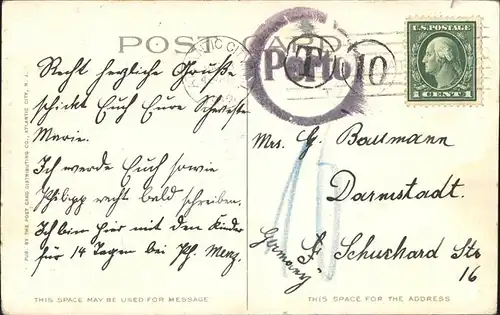 POST CARD
Porto
T
10
U.S. POSTAGE
1 CENT 1
Recht herzliche Grüße
schickt Euch Eure Schwester
Marie.
Ich werde Euch sowie
Philipp recht bald schreiben.
Ich bin hier mit den Kinder
für 14 Tagen bei Ph. Menz.
Mrs. G. Baumann
Darmstadt.
Schuchard Str
16
Germany
15
PUB. BY THE POST CARD DISTRIBUTING CO., ATLANTIC CITY, N. J.
THIS SPACE MAY BE USED FOR MESSAGE
THIS SPACE FOR THE ADDRESS